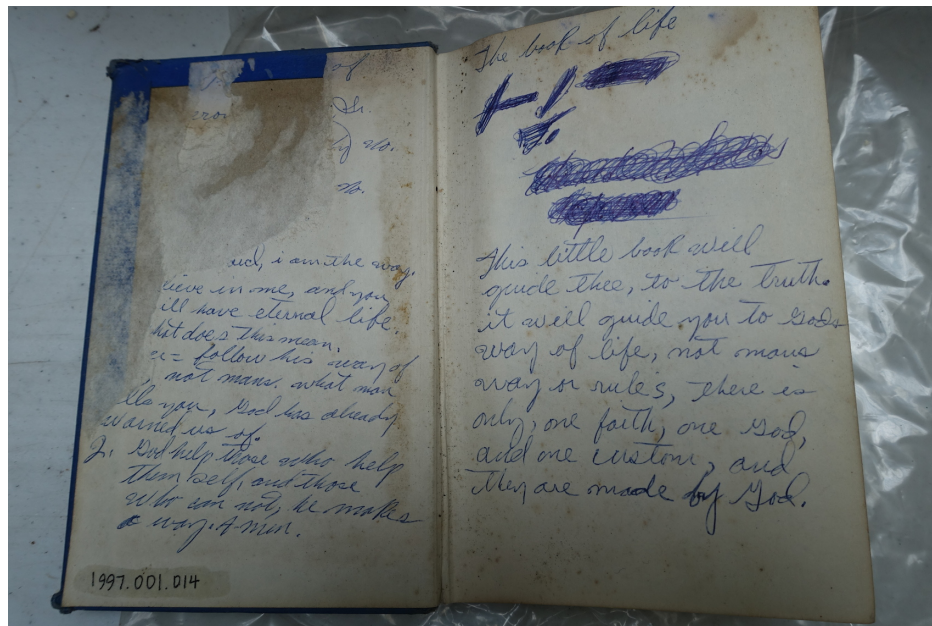 of
Sr.
no.
no.
i am the way.
in me, and you
ill have eternal life.
hat does this mean.
= follow his way of
, not mans. what man
lls you, God has already
warned us of.
2. God help those who help
them self, and those
who can not, he makes
a way. Amen.
1997.001.014
The book of life
This little book will
guide thee, to the truth.
it will guide you to Gods
way of life, not mans
way or rules, there is
only, one faith, one God,
and one custom, and
they are made by God.